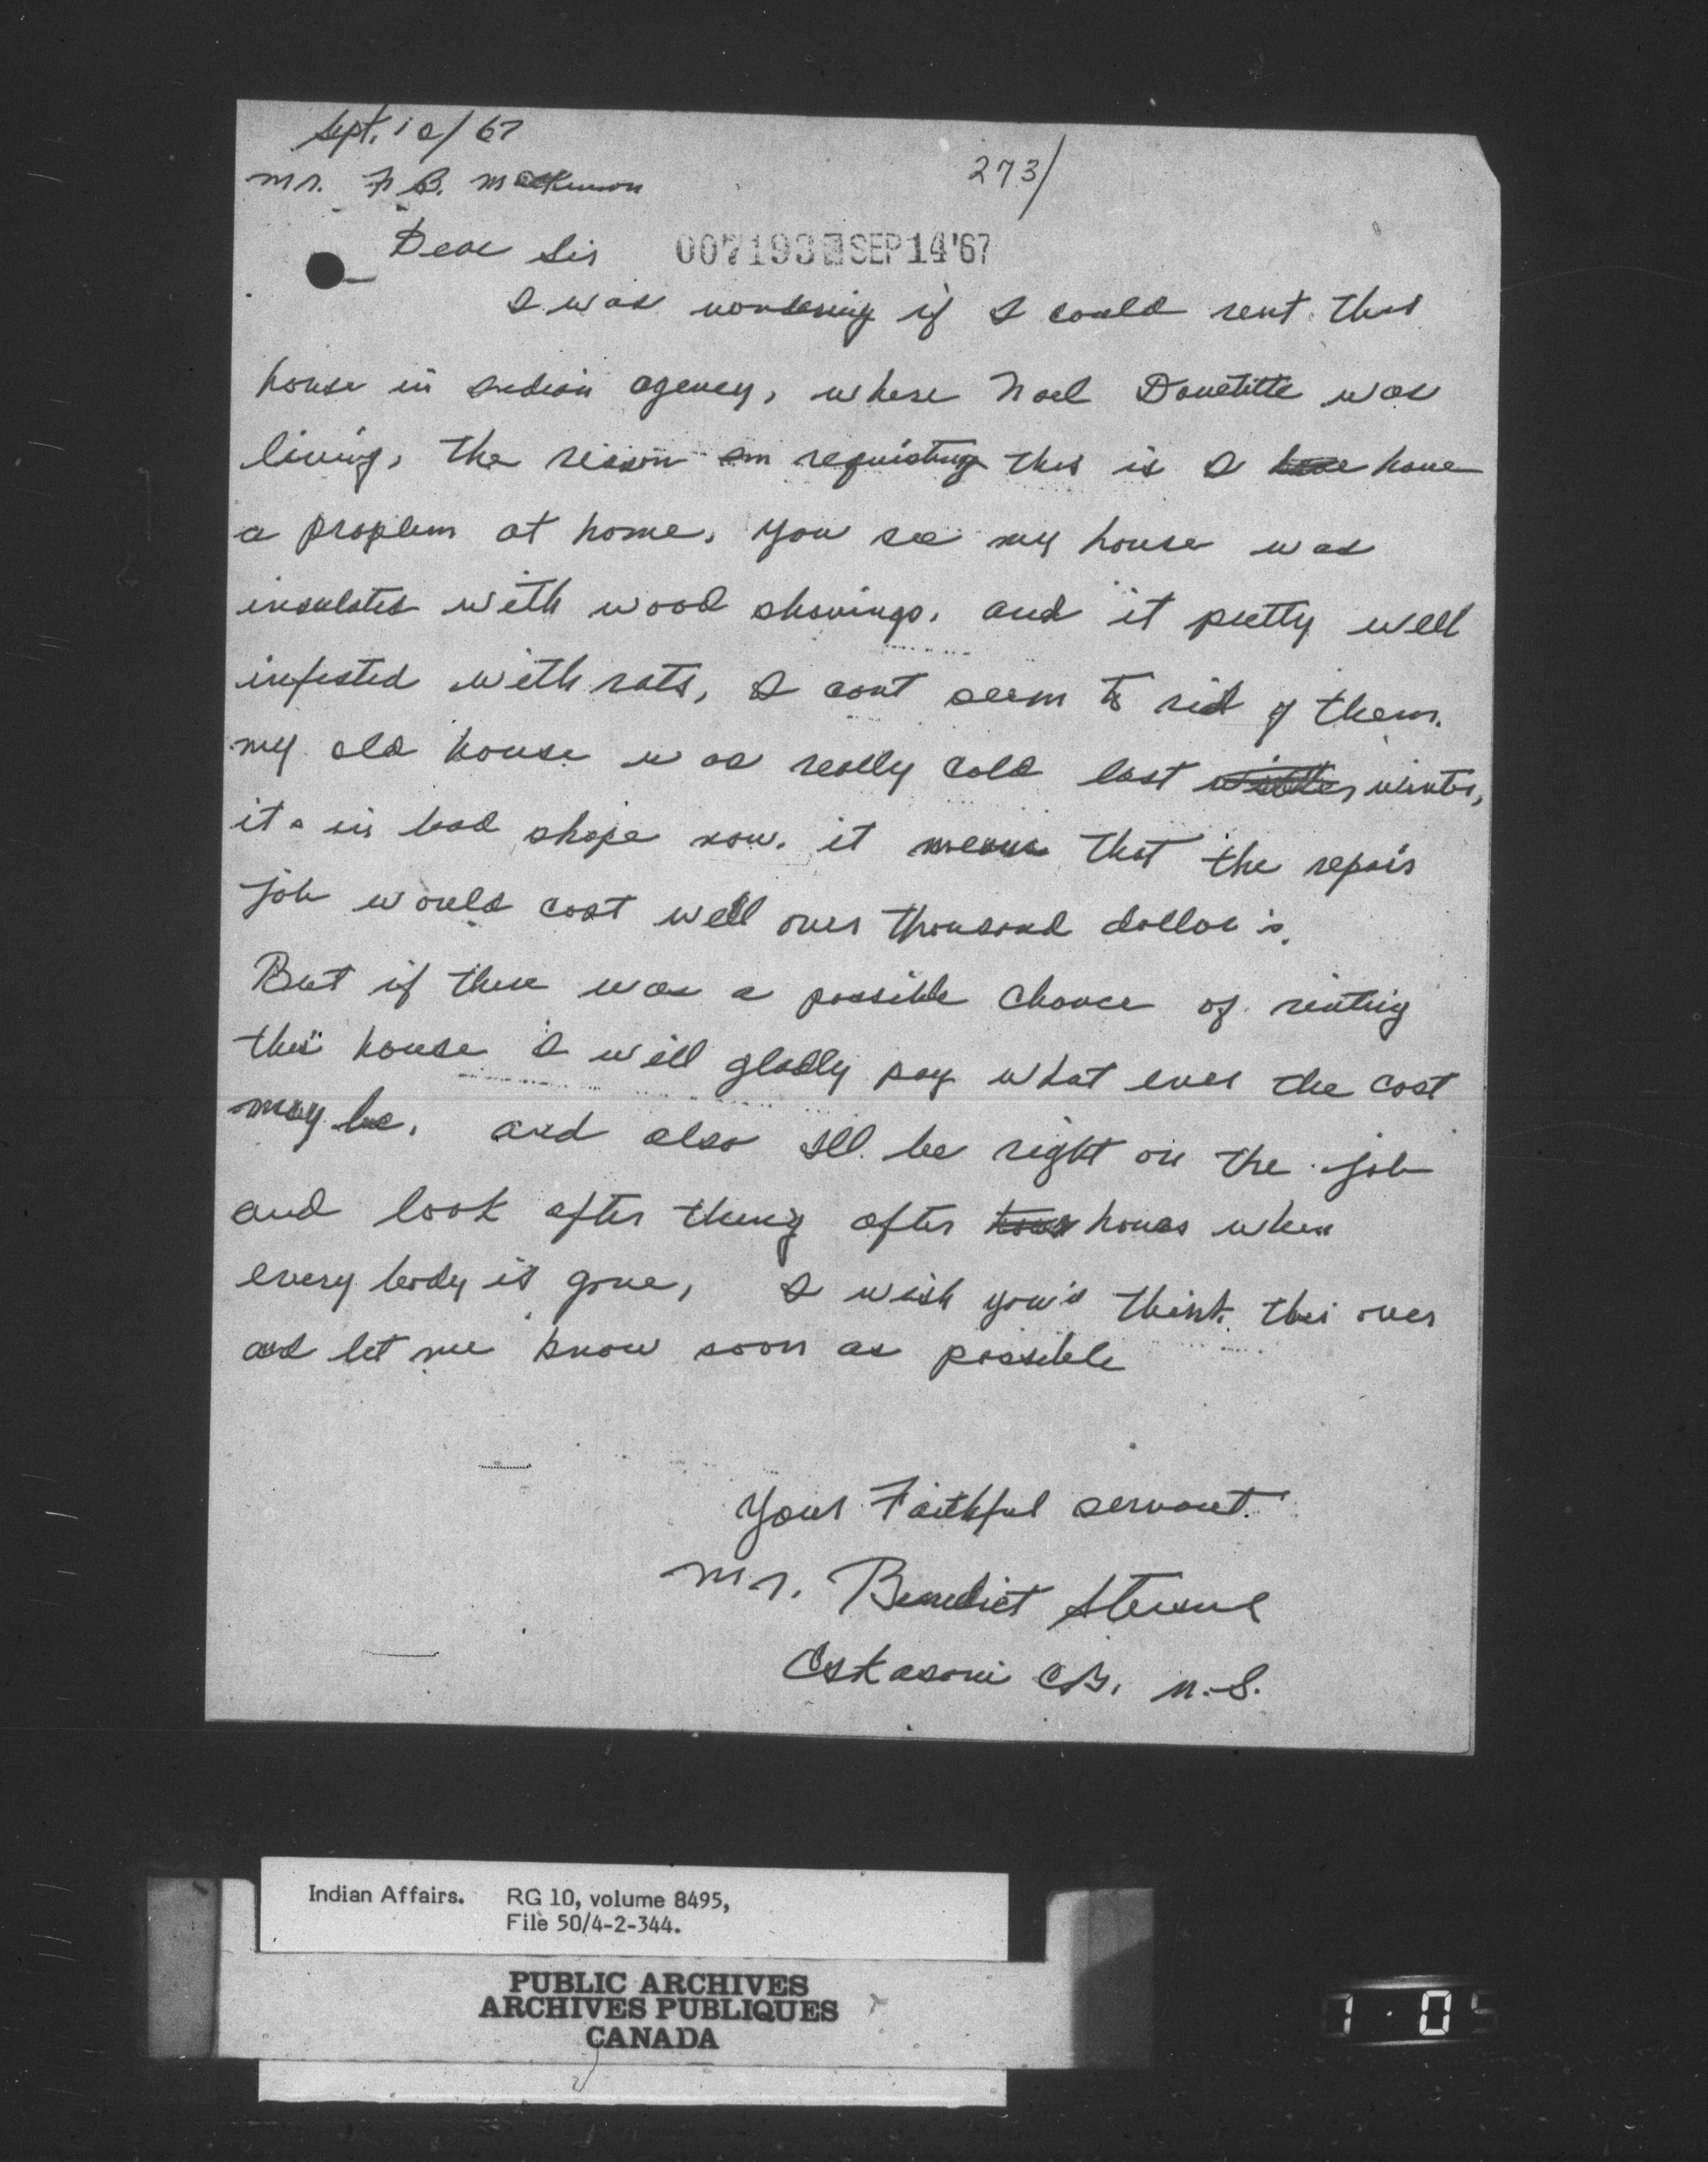 Sept. 10/67
273/
Mr. F. B. MacKinnon
Dear Sir
007193 SEP 14 '67
I was wondering if I could rent that
house in Indian agency, where Noel Doucette was
living, the reason am requisting this is I have have
a proplem at home, you see my house was
insulated with wood shavings. and it pretty well
infested with rats, I cant seem to rid of them.
my old house was really cold last winter,
its in bad shape now. it means that the repair
job would cost well over thousand dollar's.
But if there was a possible chance of renting
this house I will gladly pay what ever the cost
may be. and also Ill be right on the job
and look after thing after hours when
every body is gone, I wish you'd think this over
and let me know soon as possible
Your Faithful servant.
Mr. Benedict Stevens
Eskasoni C.B. N.S.
Indian Affairs. RG 10, volume 8495,
File 50/4-2-344.
PUBLIC ARCHIVES
ARCHIVES PUBLIQUES
CANADA